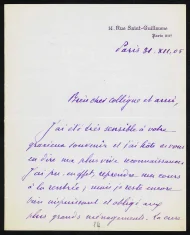 14 Rue Saint-Guillaume
Paris VIIe
Paris 31. XII. 05
Bien cher collègue et ami,
J'ai été très sensible à votre
gracieux souvenir et j'ai hâte de vous
en dire ma plus vive reconnaissance.
J'ai pu en effet, reprendre mes cours
à la rentrée ; mais je reste encore
bien et obligé aux
plus grands ménagements. La cure